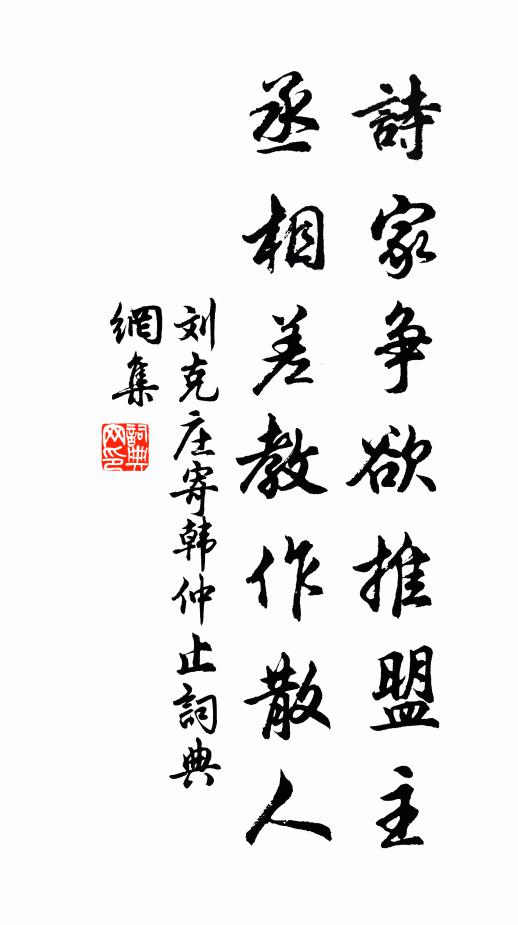 詩家争欲推盟主
丞相差教作散人
刘克庄寄韩仲止詞典
網集
詞典網印